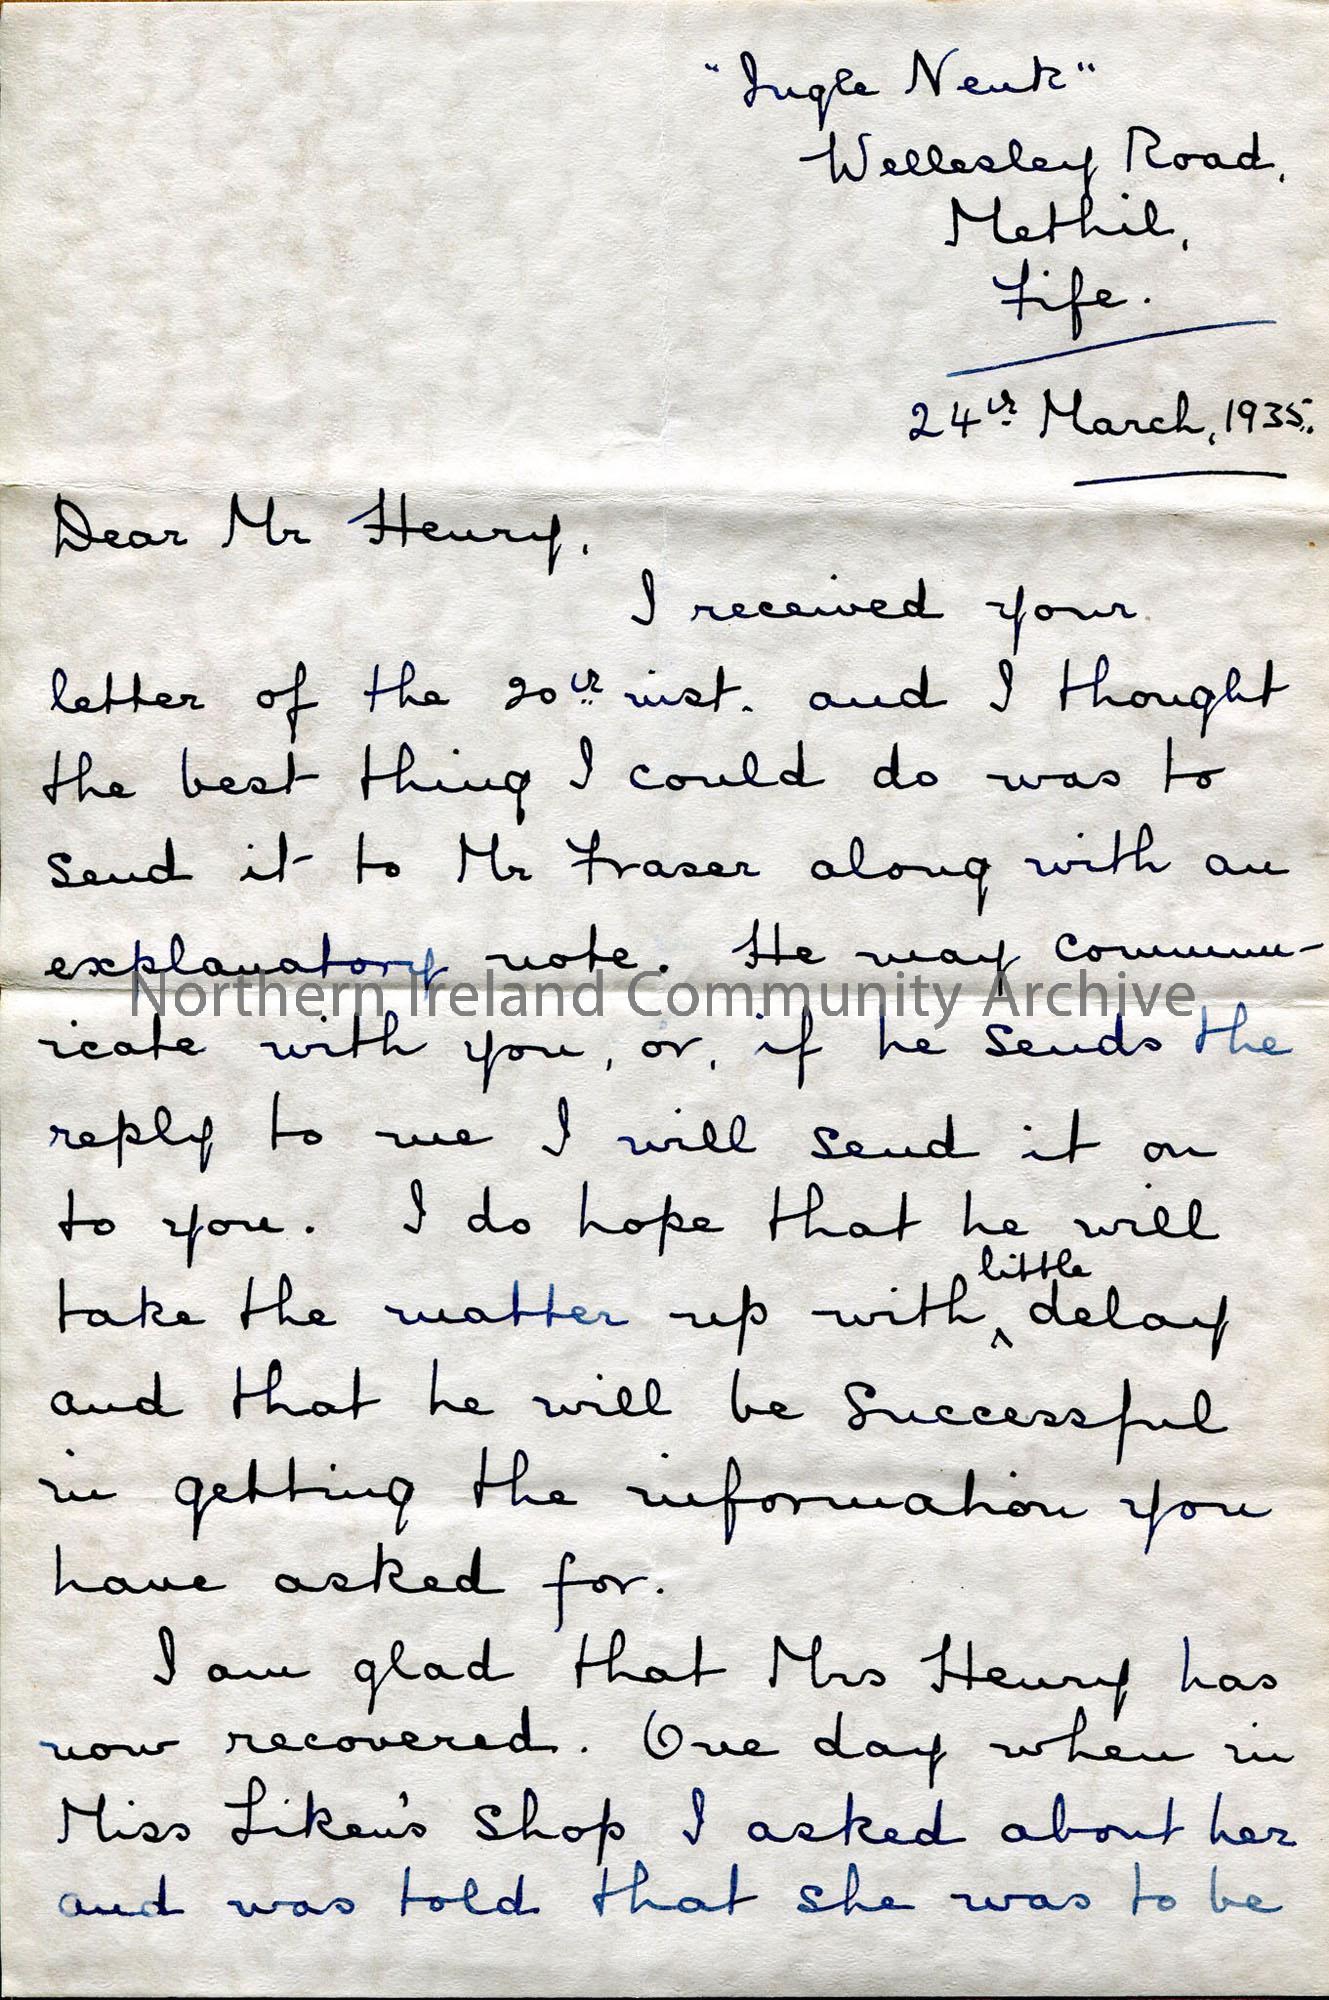 "Ingle Neuk"
Wellesley Road,
Methil,
Fife.
24th March, 1935.
Dear Mr Henry,
I received your
letter of the 20th inst. and I thought
the best thing I could do was to
send it to Mr Fraser along with an
explanatory note. He may commun-
Northern Ireland Community Archive
icate with you, or, if he sends the
reply to me I will send it on
to you. I do hope that he will
take the matter up with ^little delay
and that he will be successful
in getting the information you
have asked for.
I am glad that Mrs Henry has
now recovered. One day when in
Miss Liken's shop I asked about her
and was told that she was to be